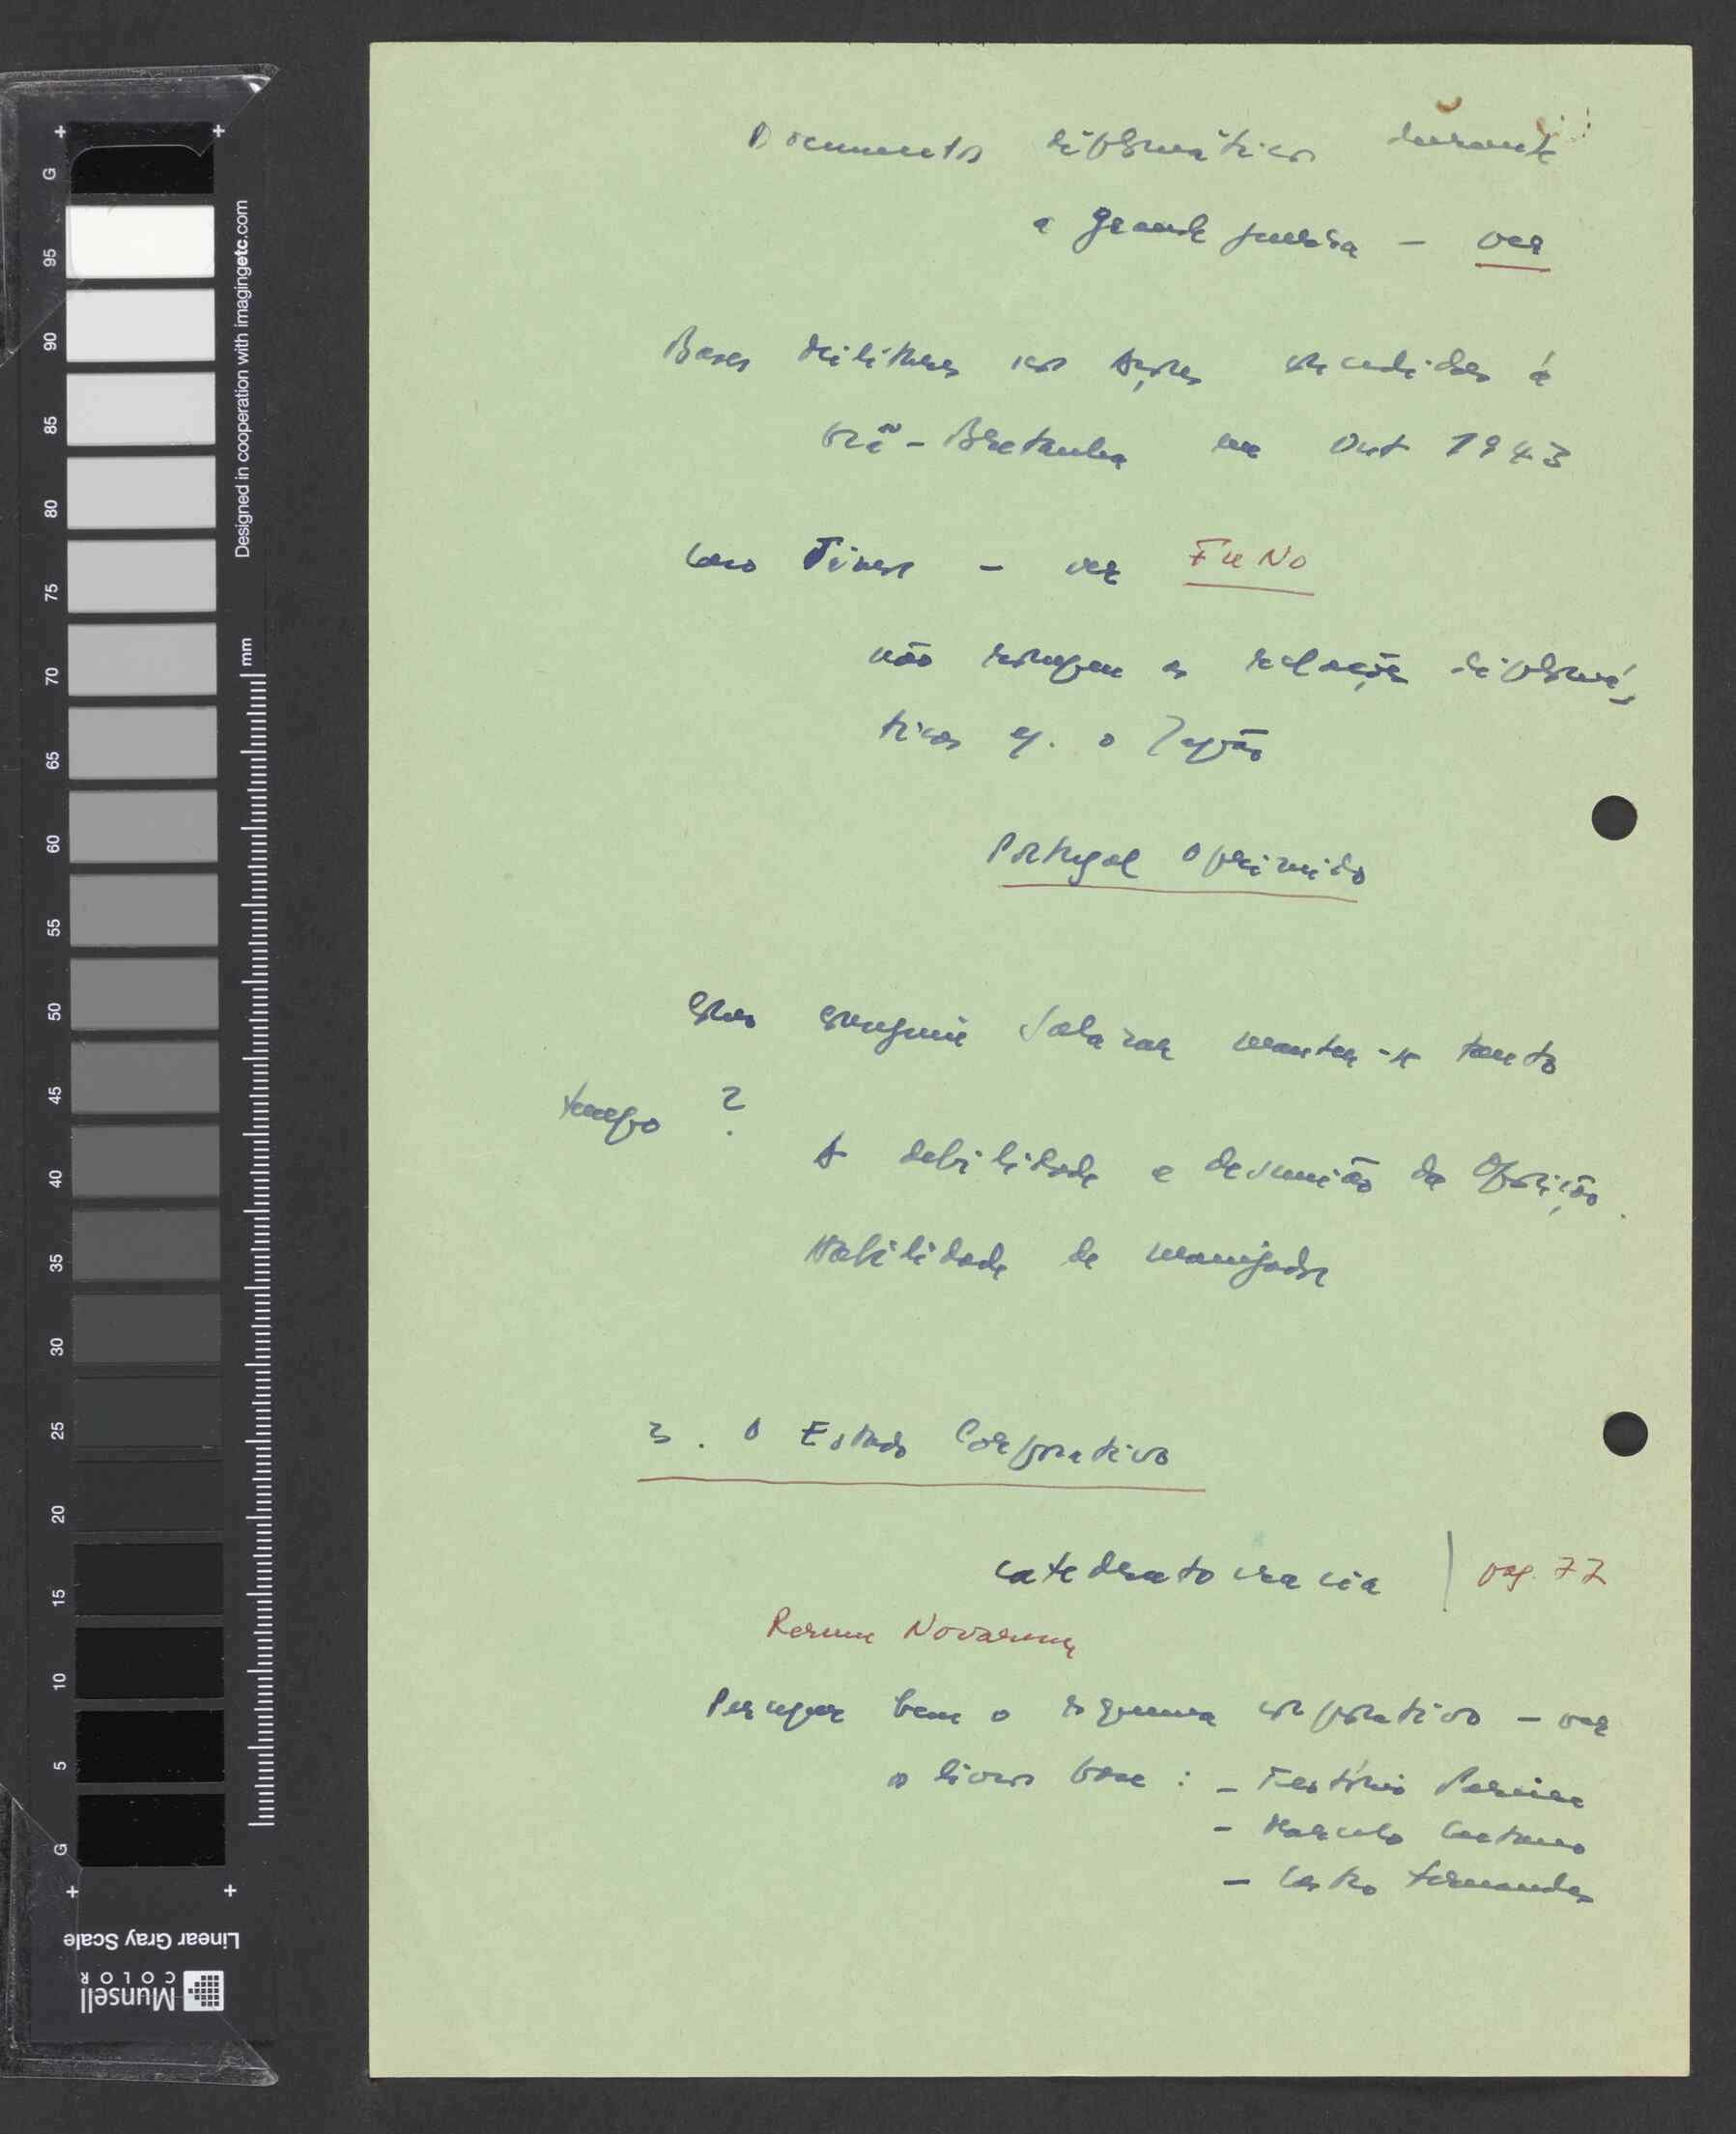 Documentos diplomáticos durante
a grande guerra – ver
Bases militares nos Açores concedidas à
Grã-Bretanha em Out 1943
Caso Timor – ver FuNo
não rompeu as relações diplomá-
ticas c/. o Japão
Portugal Oprimido
Como conseguiu Salazar manter-se tanto
tempo ?
A debilidade e desunião da Oposição.
Habilidade de manejador
3. O Estado Corporativo
catedratocracia | pag. 77
Rerum Novarum
Perceber bem o esquema corporativo – ver
os livros base : – Teotónio Pereira
– Marcelo Caetano
– Castro Fernandes
G
95
90
85
80
75
70
65
60
55
50
45
40
35
30
25
20
15
10
5
G
mm
Designed in cooperation with imagingetc.com
Linear Gray Scale
Munsell
COLOR